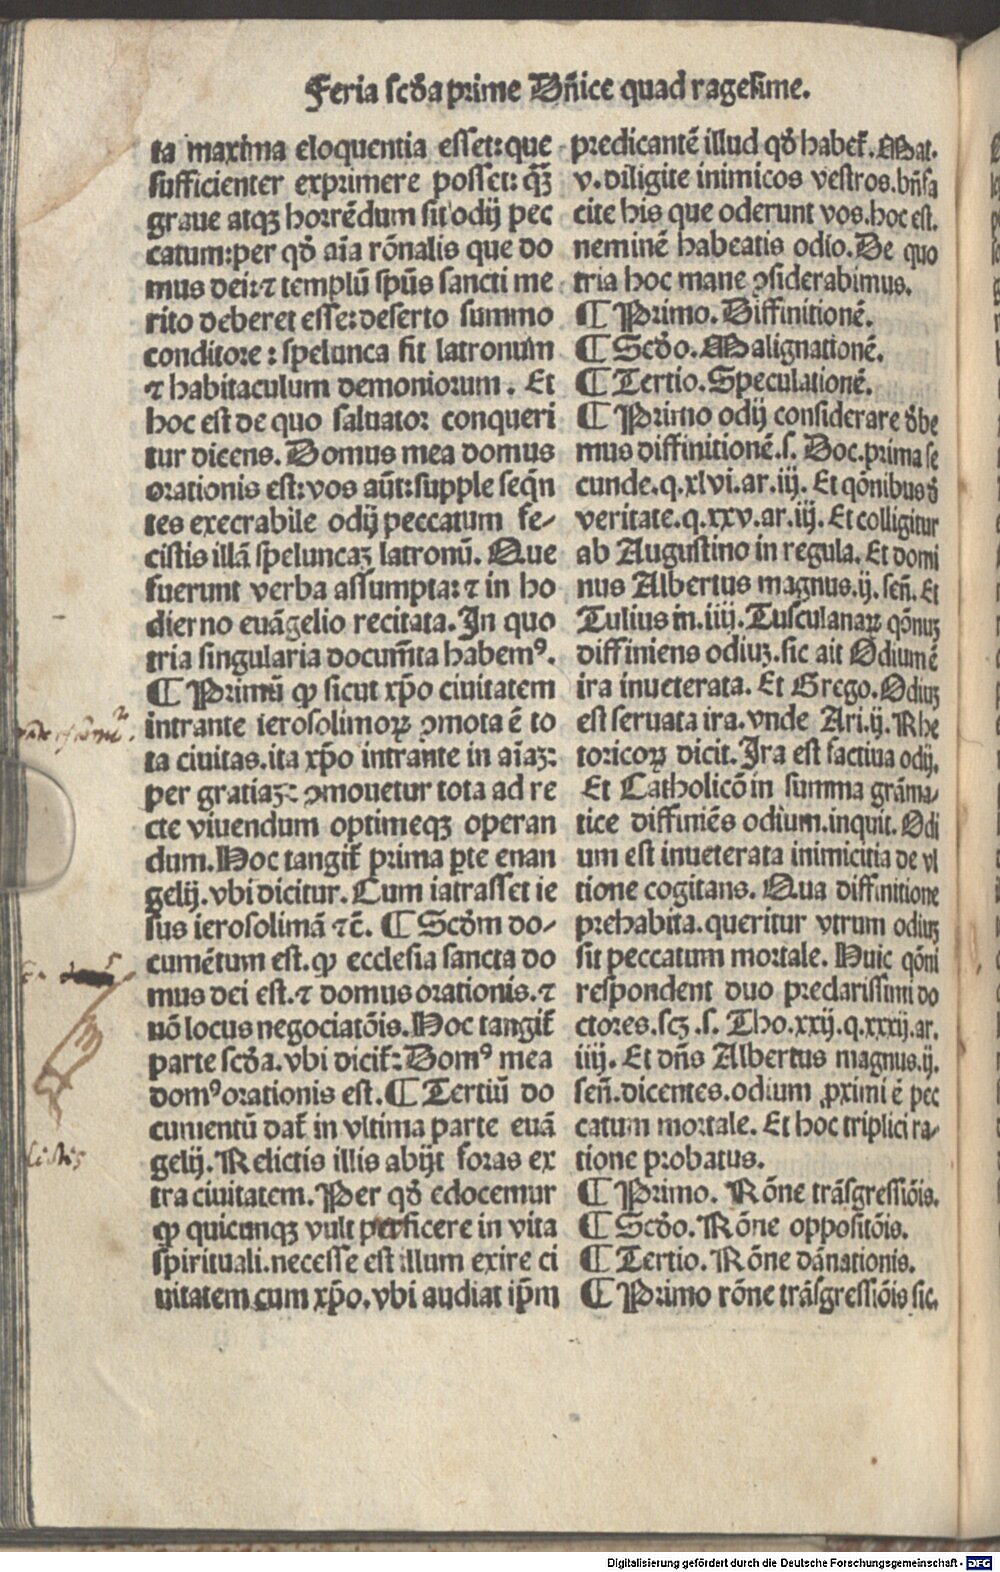 Feria scd̄a prime Dn̄ice quad ragesime.
ta maxima eloquentia esset: que
sufficienter exprimere posset: q̄ȝ
graue atqȝ horrēdum sit odij pec
catum: per qd̄ aīa rōnalis que do
mus dei: ⁊ templū spūs sancti me
rito deberet esse: deserto summo
conditore: spelunca fit latronum
⁊ habitaculum demoniorum. Et
hoc est de quo saluator conqueri
tur dicens. Domus mea domus
orationis est: vos aūt: supple seq̄n
tes execrabile odij peccatum fe-
cistis illā speluncaȝ latronū. Que
fuerunt verba assumpta: ⁊ in ho
dierno euāgelio recitata. In quo
tria singularia documēta habemꝰ.
¶ Primū ꝙ sicut xp̄o ciuitatem
intrante ierosolimoꝝ ↄmota ē to
ta ciuitas. ita xp̄o intrante in aīaȝ:
per gratiaȝ: ↄmouetur tota ad re
cte viuendum optimeqȝ operan
dum. Hoc tangit᷑ prima ꝑte enan
gelij. vbi dicitur. Cum iatrasset ie
sus ierosolimā ⁊c̄. ¶ Scd̄m do-
cumētum est. ꝙ ecclesia sancta do
mus dei est. ⁊ domus orationis. ⁊
nō locus negociatōis. Hoc tangit᷑
parte scd̄a. vbi dicit᷑: Domꝰ mea
domꝰ orationis est. ¶ Tertiū do
cumentū dat᷑ in vltima parte euā
gelij. Relictis illis abijt foras ex
tra ciuitatem. Per qd̄ edocemur
ꝙ quicunqȝ vult perficere in vita
spirituali. necesse est illum exire ci
uitatem cum xp̄o. vbi audiat ip̄m
predicantē illud qd̄ habet᷑. Mat.
v. diligite inimicos vestros. bn̄fa
cite his que oderunt vos. hoc est.
neminē habeatis odio. De quo
tria hoc mane ↄsiderabimus.
¶ Primo. Diffinitionē.
¶ Scd̄o. Malignationē.
¶ Tertio. Speculationē.
¶ Primo odij considerare d̄be
mus diffinitionē. s. Doc. prima se
cunde. q. xlvi. ar. iij. Et qōnibus d̄
veritate. q. xxv. ar. iij. Et colligitur
ab Augustino in regula. Et domi
nus Albertus magnus. ij. sen̄. Et
Tulius in. iiij. Tusculanaꝝ qōnuȝ
diffiniens odiuȝ. sic ait Odium ē
ira inueterata. Et Grego. Odiuȝ
est seruata ira. vnde Ari. ij. Rhe
toricoꝝ dicit. Ira est factiua odij.
Et Catholicō in summa grāma-
tice diffiniēs odium. inquit. Odi
um est inueterata inimicitia de vl
tione cogitans. Qua diffinitione
prehabita. queritur vtrum odiuȝ
sit peccatum mortale. Huic qōni
respondent duo preclarissimi do
ctores. scȝ. s. Tho. xxij. q. xxxij. ar.
iiij. Et dn̄s Albertus magnus. ij.
sen̄. dicentes. odium ꝓximi ē pec
catum mortale. Et hoc triplici ra-
tione probatus.
¶ Primo. Rōne trāsgressiōis.
¶ Scd̄o. Rōne oppositōis.
¶ Tertio. Rōne dānationis.
¶ Primo rōne trāsgressiōis sic.
Digitalisierung gefördert durch die Deutsche Forschungsgemeinschaft - DFG